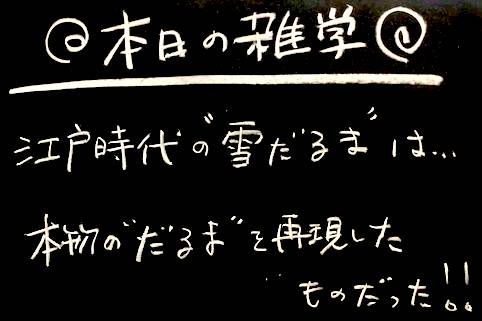 @本日の雑学@
江戸時代の"雪だるま"は...
本物の"だるま"を再現した
ものだった!!